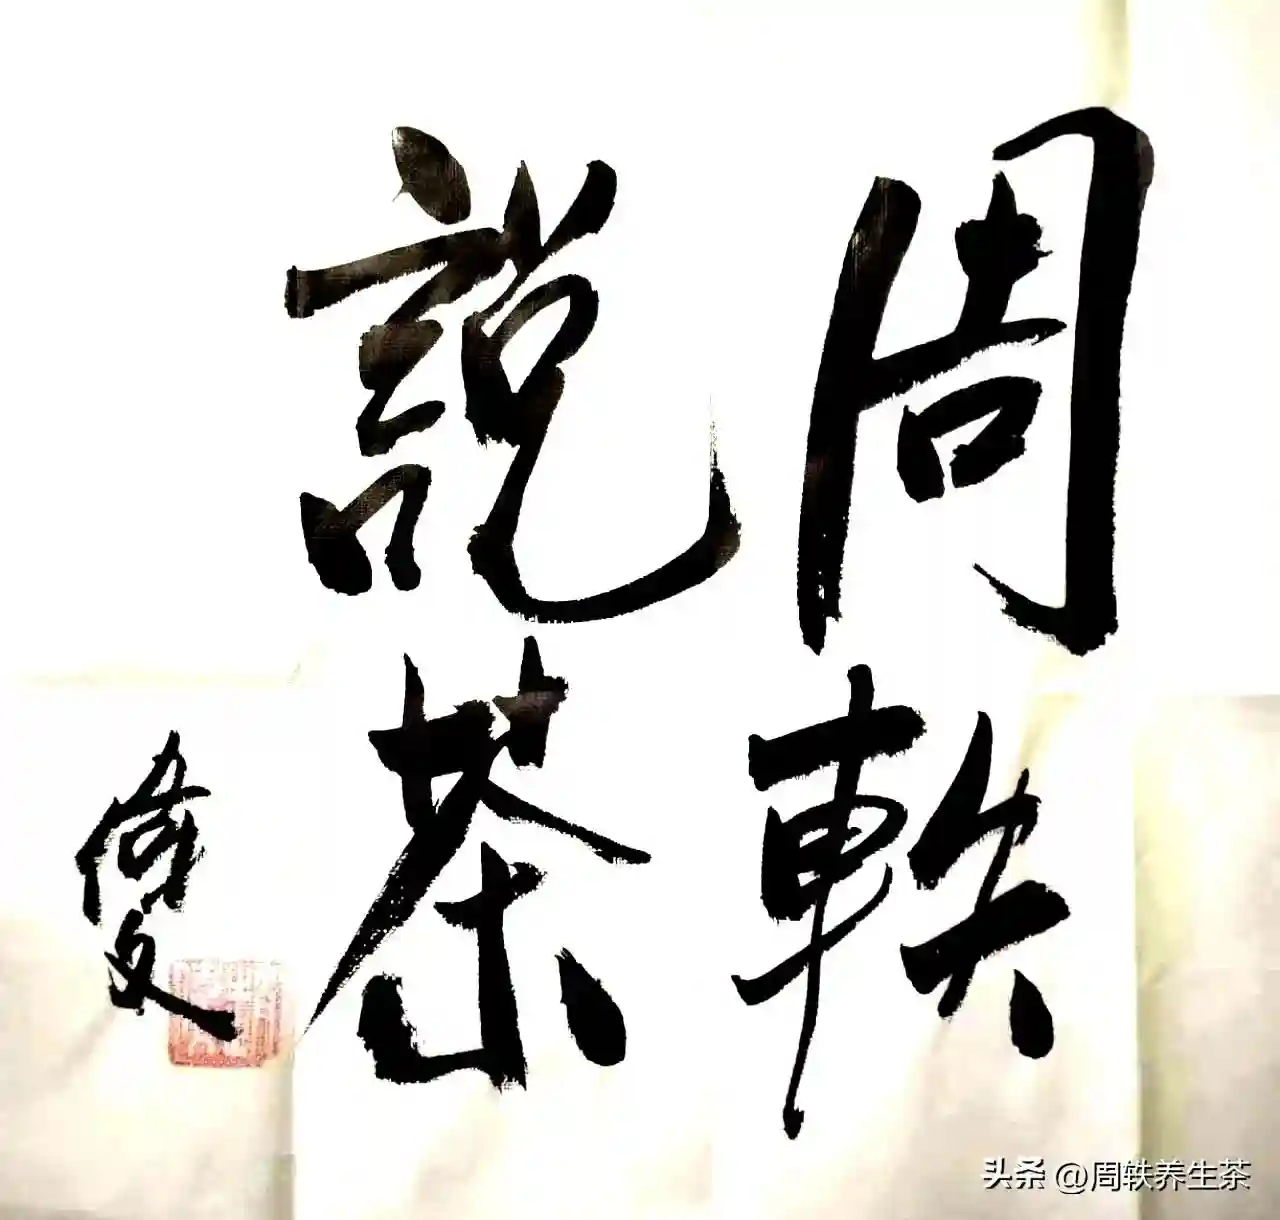 周軼
說茶
頭条 @周轶养生茶